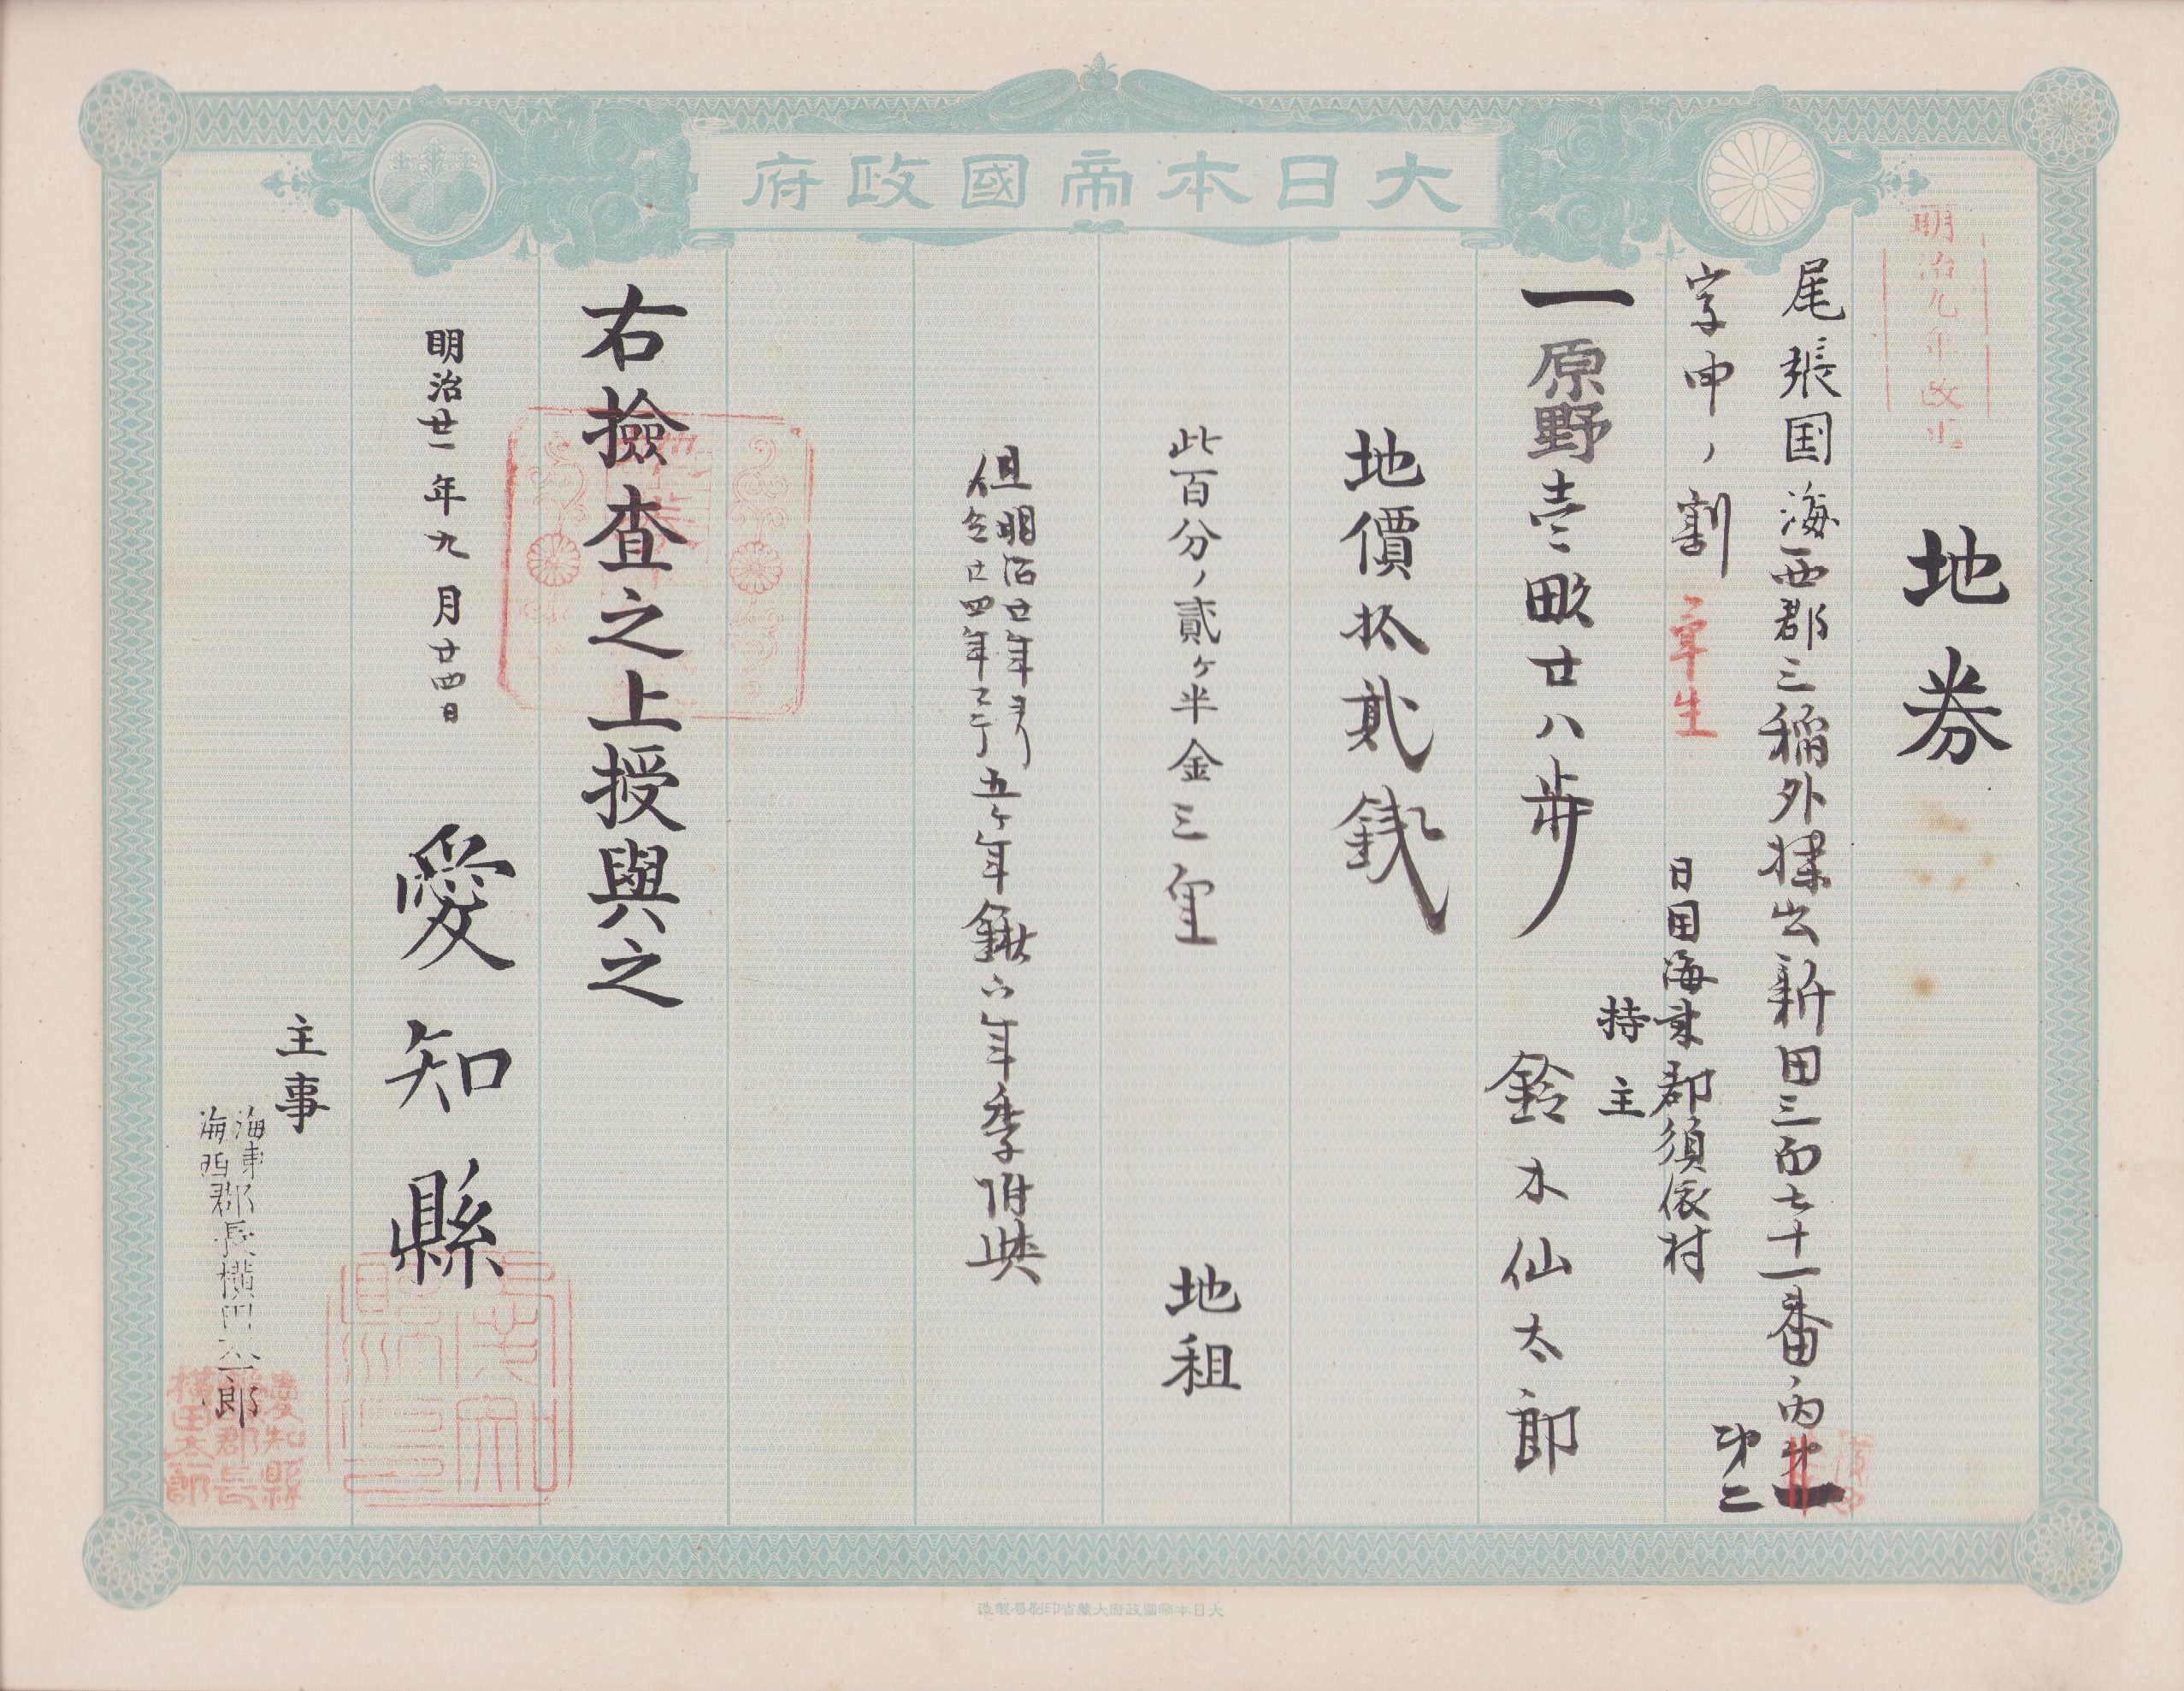 大日本帝國政府
明治九年改正
地券
尾張国海西郡三稲外揲出新田三百七十一番内第一
第二
字申ノ割
草生
一原野壱畝廿八歩
日国海東郡須依村
持主
鈴木仙太郎
地價拾貳銭
此百分ノ貳ケ半金三厘
地租
但明治廿年ヨリ
仝廿四年マテ
五ケ年鍬下年季附典
右撿査之上授與之
明治廿一年九月廿四日
愛知縣
主事
海東
海西
郡長横田太一郎
愛知縣
郡長
横田太一郎
大日本帝國政府大藏省印刷局製造